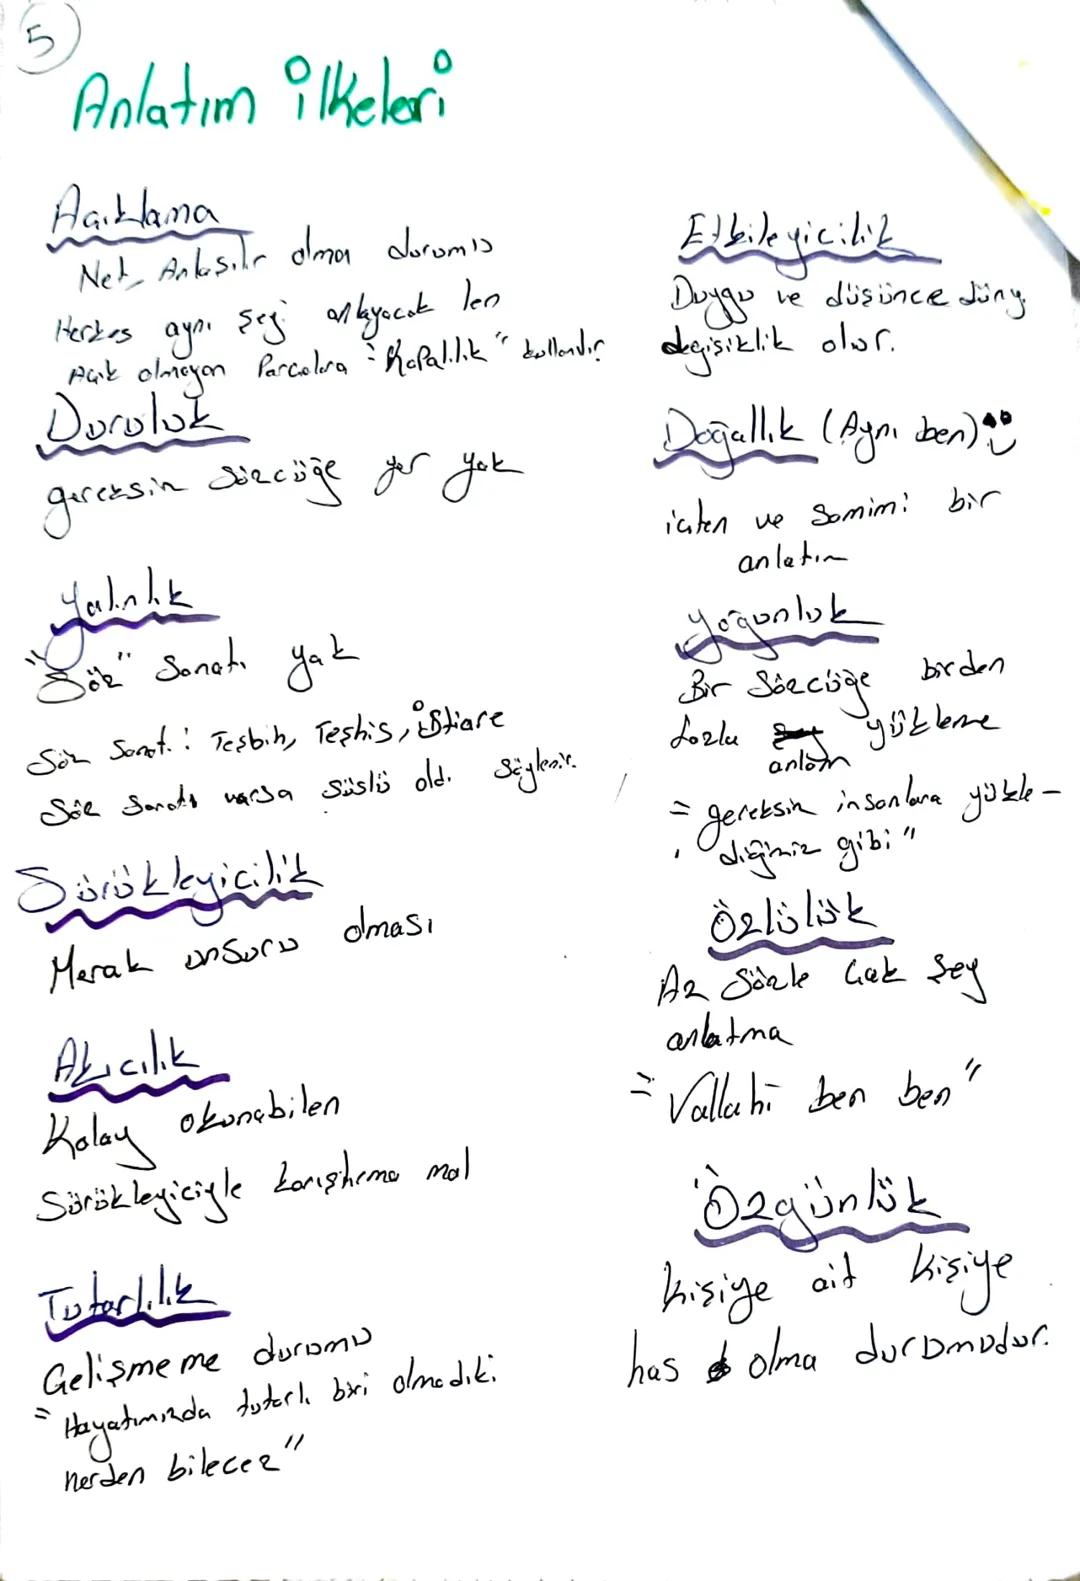 5
Anlatım ilkeleri
Açıklama
Net, Anlaşılır olma durumu
Herkes aynı şeyi anlayacak
Açık olmayan Parçalara "Kapalılık" kullanılır
Duruluk
gereksin sözcüğe yer yok
Yalınlık
"Söz" Sanatı yok
Söz Sanat.: Teşbih, Teşhis, istiare
Söz Sanatı varsa süslü old. söylenir.
Sürükleyicilik
Merak unsuru olması
Akıcılık
Kolay okunabilen
Sürükleyiciyle karıştırma mal
Tutarlılık
Gelişmeme durumu
"Hayatımızda tutarlı biri olmadıki
nerden bilecez"
Etkileyicilik
Duygu ve düşünce düny.
değişiklik olur.
Doğallık (Aynı ben)
içten ve samimi bir
anlatım
Yoğunluk
Bir Sözcüğe birden
fazla anlam yükleme
"gereksin insanlara yükle-
diğimiz gibi"
Özlülük
Az Sözle çok şey
anlatma
"Vallahi ben ben"
Özgünlük
kişiye ait kişiye
has olma durumudur.